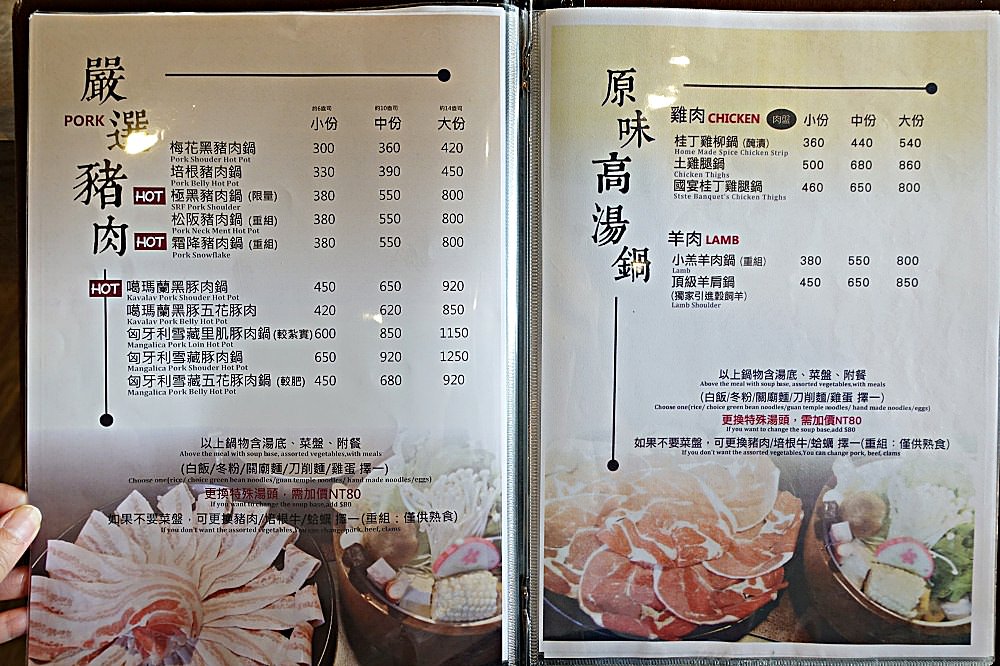 嚴選豬肉
PORK
約6盎司 約10盎司 約14盎司
小份 中份 大份
梅花黑豬肉鍋 300 360 420
Pork Shouder Hot Pot
培根豬肉鍋 330 390 450
Pork Belly Hot Pot
HOT 極黑豬肉鍋 (限量) 380 550 800
SRF Pork Shoulder
松阪豬肉鍋 (重組) 380 550 800
Pork Neck Ment Hot Pot
HOT 霜降豬肉鍋 (重組) 380 550 800
Pork Snowflake
HOT 噶瑪蘭黑豚肉鍋 450 650 920
Kavalav Pork Shouder Hot Pot
噶瑪蘭黑豚五花豚肉 420 620 850
Kavalav Pork Belly Hot Pot
匈牙利雪藏里肌豚肉鍋 (較紮實) 600 850 1150
Mangalica Pork Loin Hot Pot
匈牙利雪藏豚肉鍋 650 920 1250
Mangalica Pork Shoulder Hot Pot
匈牙利雪藏五花豚肉鍋 (較肥) 450 680 920
Mangalica Pork Belly Hot Pot
以上鍋物含湯底、菜盤、附餐
Above the meal with soup base, assorted vegetables,with meals
(白飯/冬粉/關廟麵/刀削麵/雞蛋 擇一)
Choose one(rice/ choice green bean noodles/guan temple noodles/ hand made noodles/eggs)
更換特殊湯頭，需加價NT80
If you want to change the soup base,add $80
如果不要菜盤，可更換豬肉/培根牛/蛤蠣 擇一(重組：僅供熟食)
If you don't want the assorted vegetables,You can change pork, beef, clams
原味高湯鍋
雞肉 CHICKEN 肉盤 小份 中份 大份
桂丁雞柳鍋 (醃漬) 360 440 540
Home Made Spice Chicken Strip
土雞腿鍋 500 680 860
Chicken Thighs
國宴桂丁雞腿鍋 460 650 800
Stste Banquet's Chicken Thighs
羊肉 LAMB
小羔羊肉鍋 (重組) 380 550 800
Lamb
頂級羊肩鍋 450 650 850
(獨家引進穀飼羊)
Lamb Shoulder
以上鍋物含湯底、菜盤、附餐
Above the meal with soup base, assorted vegetables,with meals
(白飯/冬粉/關廟麵/刀削麵/雞蛋 擇一)
Choose one(rice/ choice green bean noodles/guan temple noodles/ hand made noodles/eggs)
更換特殊湯頭，需加價NT80
If you want to change the soup base,add $80
如果不要菜盤，可更換豬肉/培根牛/蛤蠣 擇一(重組：僅供熟食)
If you don't want the assorted vegetables,You can change pork, beef, clams